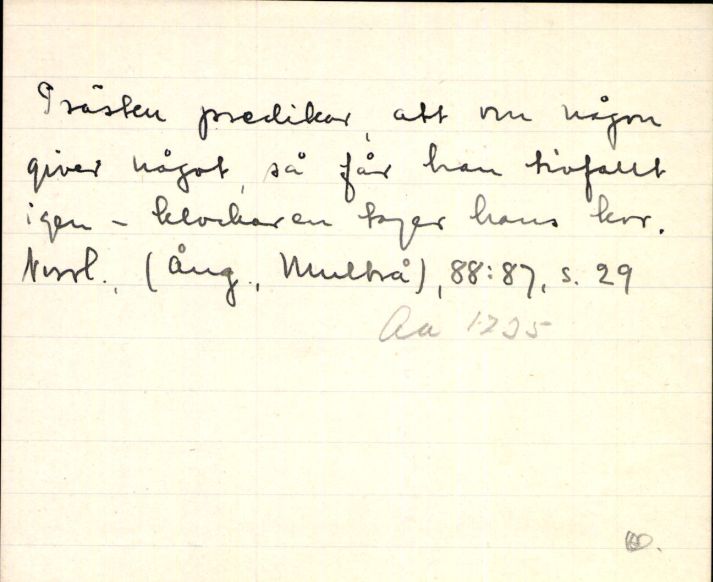 Prästen predikar, att om någon
giver något, så får han tiofallt
igen - klockaren tager hans kor.
Norrl., (Ång., Multrå), 88:87, s. 29
Aa 1735